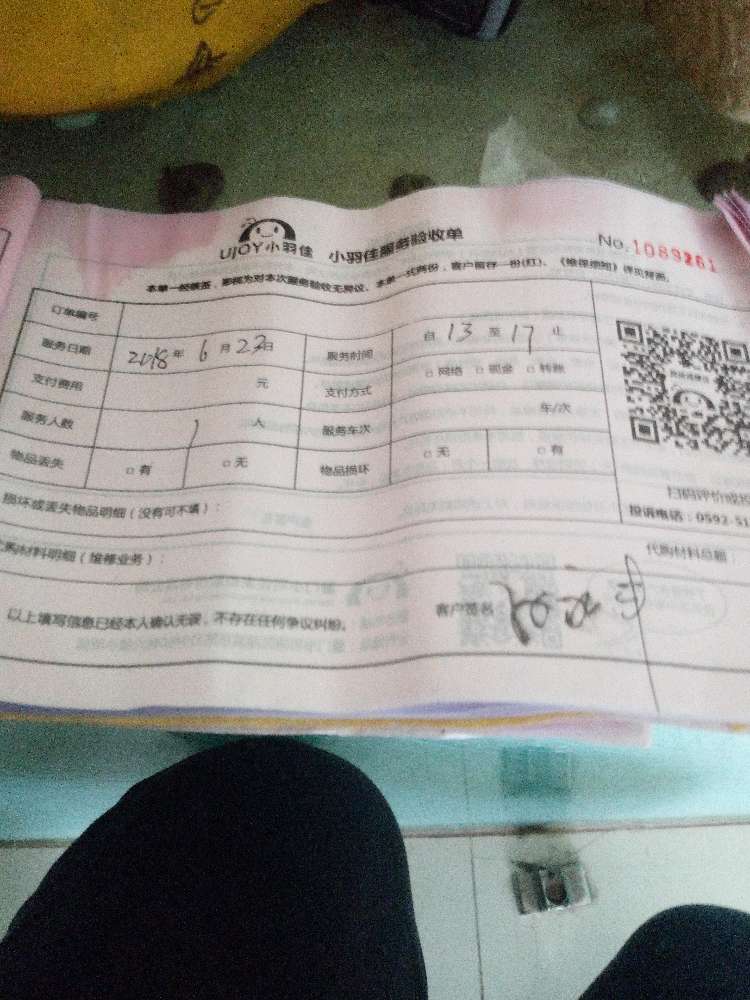 UJOY小羽佳 小羽佳服务验收单 No.1089261
本单一经填签，即视为对本次服务验收无异议。本单一式两份，客户留存一份(红)、《维保细则》详见背面。
订单编号
服务日期 2018年6月23日 服务时间 自13至17止
支付费用 元 支付方式 □网络 □现金 □转账
服务人数 1人 服务车次 车/次
物品丢失 □有 □无 物品损坏 □无 □有
扫码评价或投
损坏或丢失物品明细（没有可不填）：
投诉电话：0592-51
代购材料明细（维修业务）： 代购材料总额：
以上填写信息已经本人确认无误，不存在任何争议纠纷。 客户签名